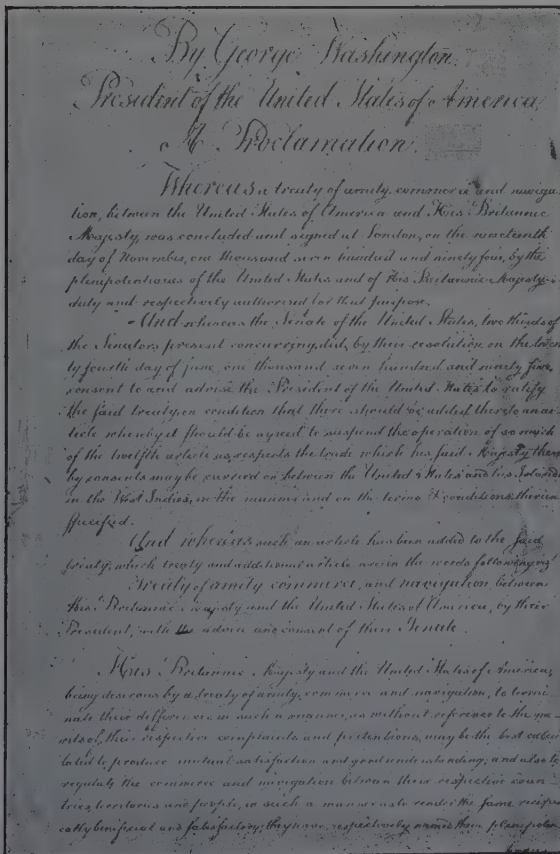 By George Washington.
President of the United States of America,
A Proclamation.
Whereas a treaty of amity, commerce and naviga-
tion, between the United States of America and His Britannic
Majesty, was concluded and signed at London, on the nineteenth
day of November, one thousand seven hundred and ninety four, by the
plenipotentiaries of the United States and of His Britannic Majesty,
duly and respectively authorised for that purpose.
And whereas the Senate of the United States, two thirds of
the Senators present concurring, did, by their resolution, on the twen
ty fourth day of june, one thousand seven hundred and ninety five,
consent to and advise the President of the United States to ratify
the said treaty, on condition that there should be added thereto an ar-
ticle whereby it should be agreed to suspend the operation of so much
of the twelfth article as respects the trade which his said Majesty there
by consents may be carried on between the United States and his Islands
in the West Indies, in the manner and on the terms & conditions therein
specified.
And whereas such an article has been added to the said
treaty; which treaty and additional article are in the words following viz
Treaty of amity commerce, and navigation between
His Britannic Majesty and the United States of America, by their
President, with the advice and consent of their Senate.
His Britannic Majesty and the United States of America,
being desirous by a treaty of amity, commerce and navigation, to termi
nate their differences in such a manner, as without reference to the me-
rits of their respective complaints and pretentions, may be the best calcu
lated to produce mutual satisfaction and good understanding; and also to
regulate the commerce and navigation between their respective coun-
tries, territories and people, in such a manner as to render the same recipro
cally beneficial and satisfactory; they have, respectively named their plenipoten